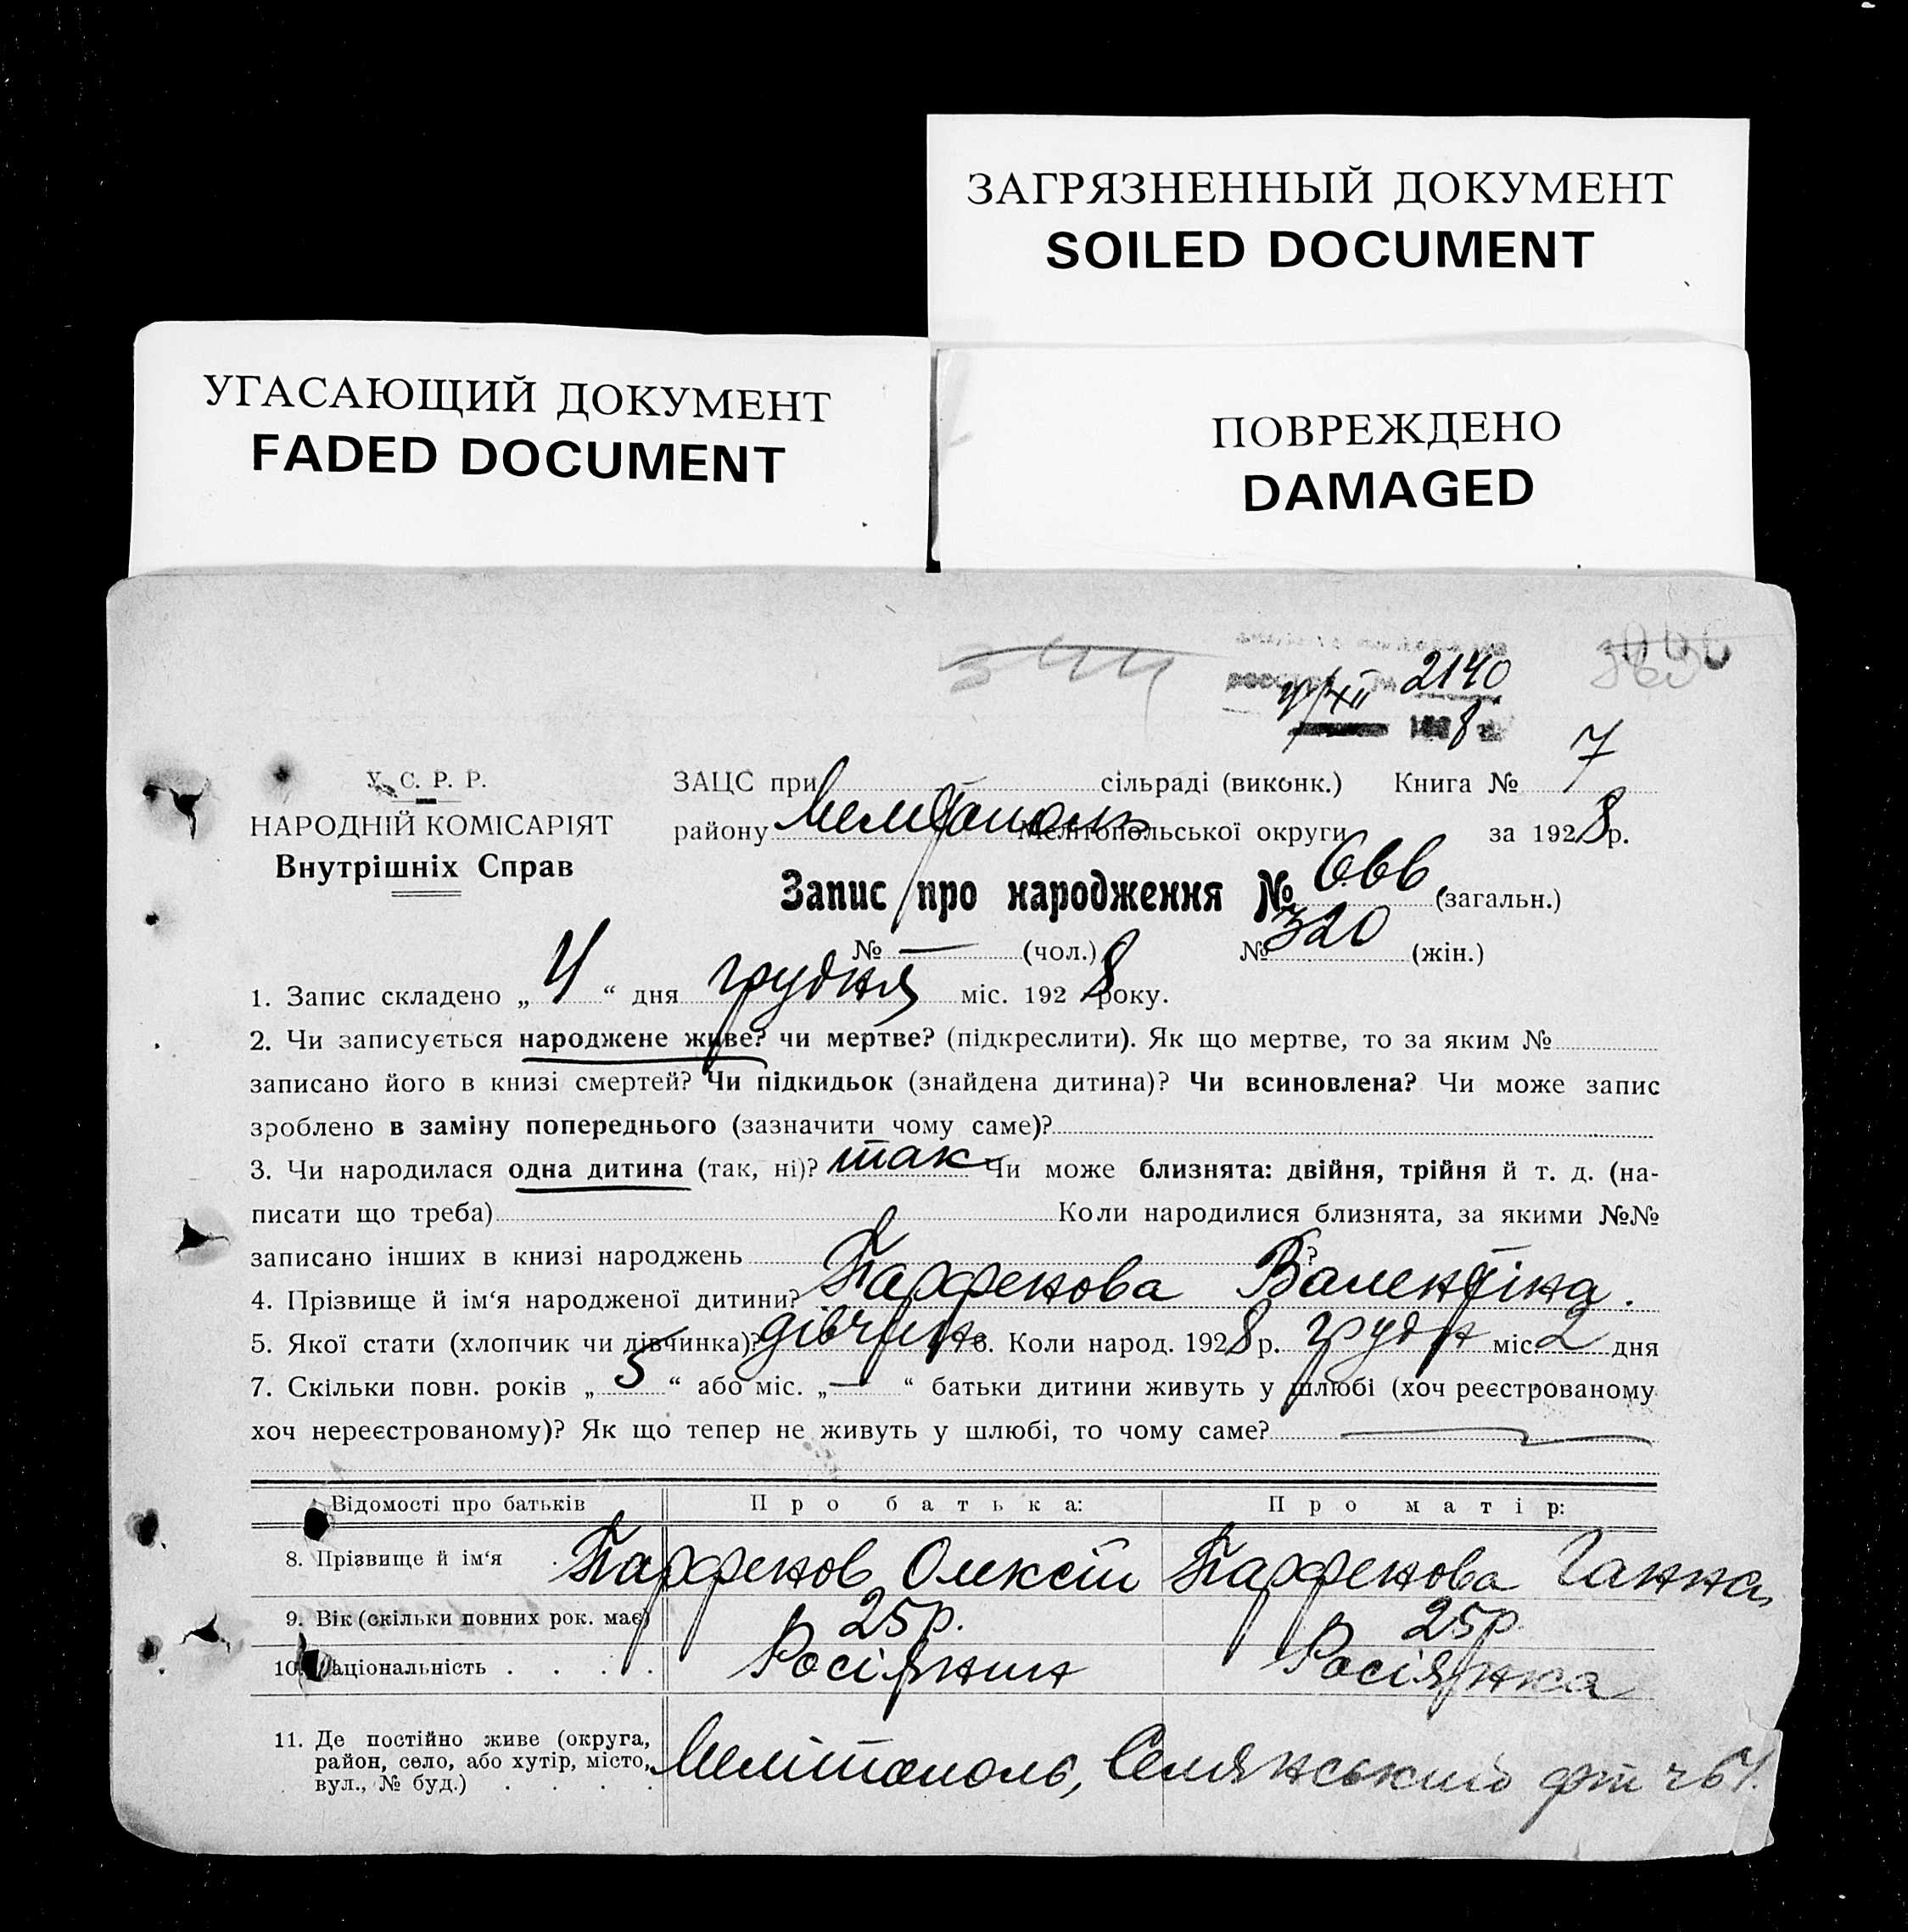 ЗАГРЯЗНЕННЫЙ ДОКУМЕНТ
SOILED DOCUMENT
УГАСАЮЩИЙ ДОКУМЕНТ
FADED DOCUMENT
ПОВРЕЖДЕНО
DAMAGED
2140
8
У. С. Р. Р.
НАРОДНІЙ КОМІСАРІЯТ
Внутрішніх Справ
ЗАЦС при сільраді (виконк.) Книга № 7
району Мелітополь Мелітопольської округи за 1928 р.
Запис про народження № 666 (загальн.)
№ — (чол.) № 320 (жін.)
1. Запис складено „ 4 “ дня грудня міс. 192 8 року.
2. Чи записується народжене живе? чи мертве? (підкреслити). Як що мертве, то за яким №
записано його в книзі смертей? Чи підкидьок (знайдена дитина)? Чи всиновлена? Чи може запис
зроблено в заміну попереднього (зазначити чому саме)?
3. Чи народилася одна дитина (так, ні)? так Чи може близнята: двійня, трійня й т. д. (на-
писати що треба) Коли народилися близнята, за якими №№
записано інших в книзі народжень ?
4. Прізвище й ім'я народженої дитини? Парфенова Валентіна.
5. Якої стати (хлопчик чи дівчинка)? дівчина 6. Коли народ. 1928 р. грудн міс. 2 дня
7. Скільки повн. років „ 5 “ або міс. „ — “ батьки дитини живуть у шлюбі (хоч реєстрованому
хоч нереєстрованому)? Як що тепер не живуть у шлюбі, то чому саме?
Відомості про батьків Про батька: Про матір:
8. Прізвище й ім'я . Парфенов Олексій Парфенова Ганна
9. Вік (скільки повних рок. має) 25р. 25р
10. Національність . . . . . Росіянин Росіянка
11. Де постійно живе (округа,
район, село, або хутір, місто,
вул., № буд.) . . . .
Мелітополь,